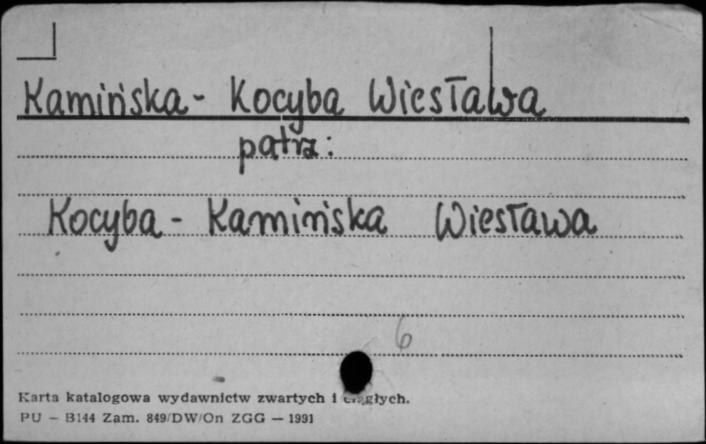 Kamińska - Kocyba Wiesława
patrz:
Kocyba - Kamińska Wiesława
6
Karta katalogowa wydawnictw zwartych i ciągłych.
PU — B144 Zam. 849/DW/On ZGG — 1991